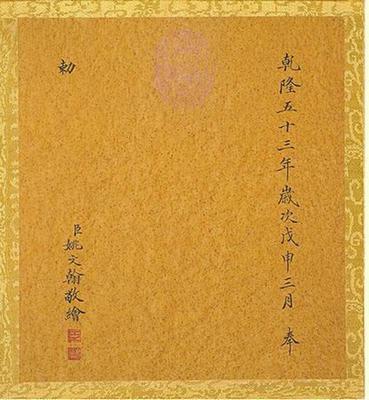 乾隆五十三年歲次戊申三月 奉
勅
臣姚文瀚敬繪